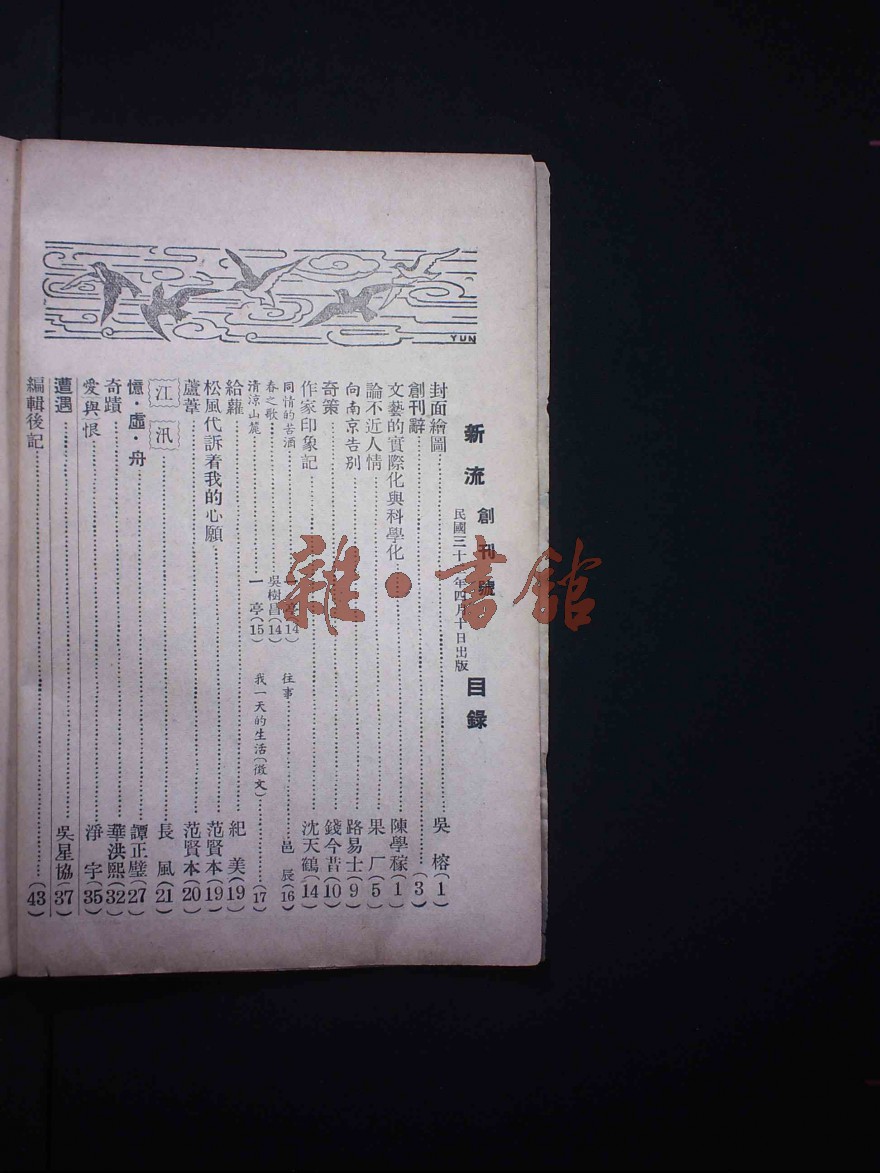 新流 創刊號 目錄
民國三十 年四月十日出版
封面繪圖 吳榕(1)
創刊辭 (3)
文藝的實際化與科學化 陳學稼(1)
論不近人情 果厂(5)
向南京告別 路易士(9)
奇策 錢今昔(10)
作家印象記 沈天鶴(14)
同情的苦酒 一 14)
往事 邑辰(16)
春之歌 吳樹昌(14)
清涼山麓 一亭(15)
我一天的生活(徵文) (17)
給蘿 紀美(19)
松風代訴着我的心願 范賢本(19)
蘆葦 范賢本(20)
江汛 長風(21)
憶·虛·舟 譚正璧(27)
奇蹟 華洪熙(32)
愛與恨 淨宇(35)
遭遇 吳星協(37)
編輯後記 (43)
YUN
雜·書館